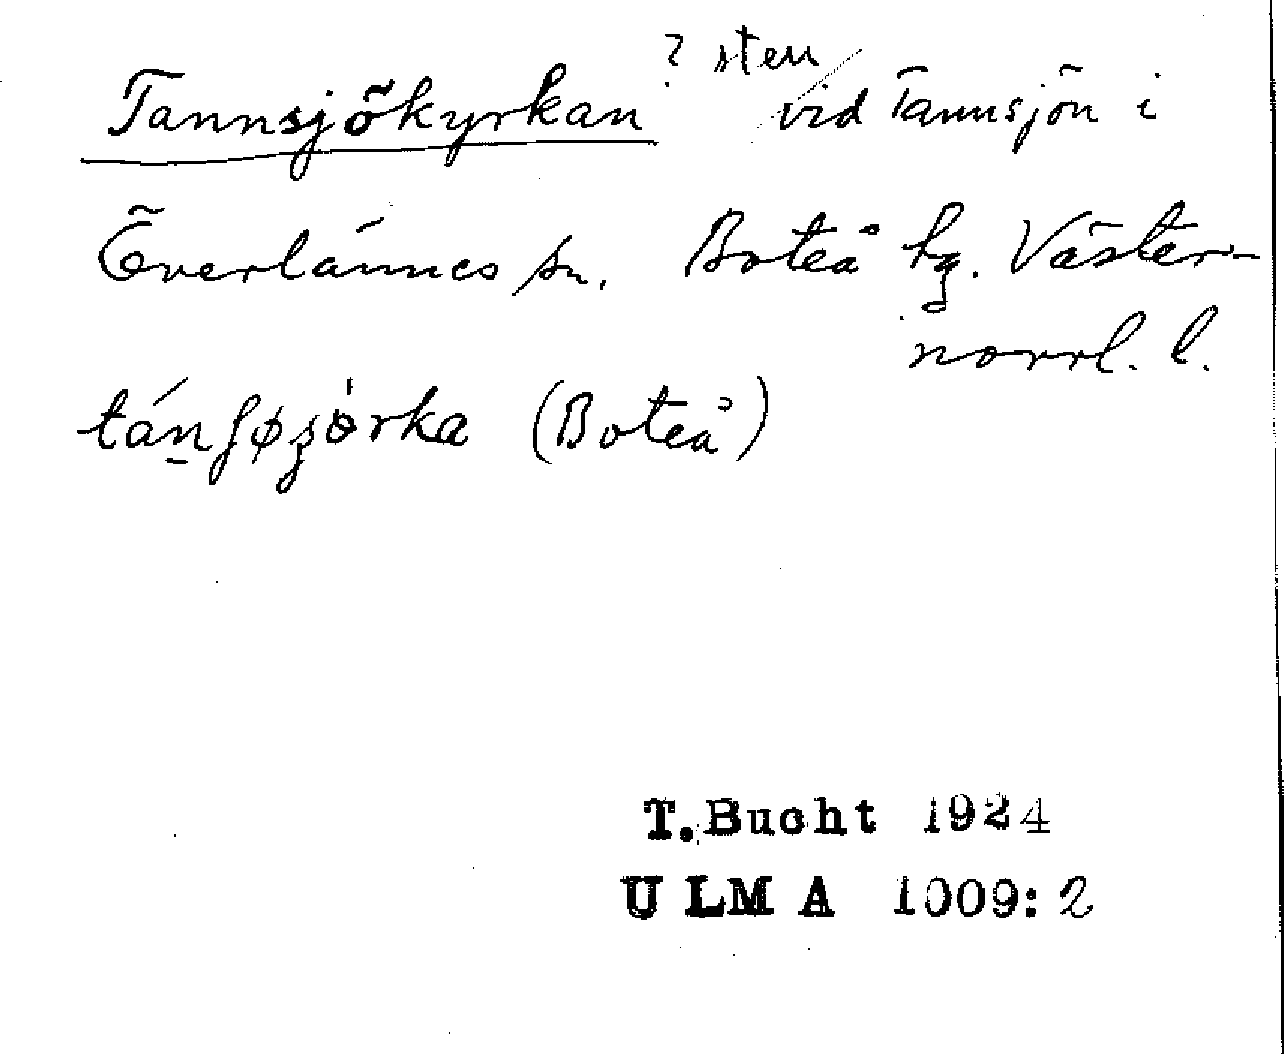 Tannsjökyrkan ? sten vid Tannsjön i
Överlännes sn. Boteå hg. Väster-
norrl. l.
(Boteå)
T. Bucht 1924
ULMA 1009: 2